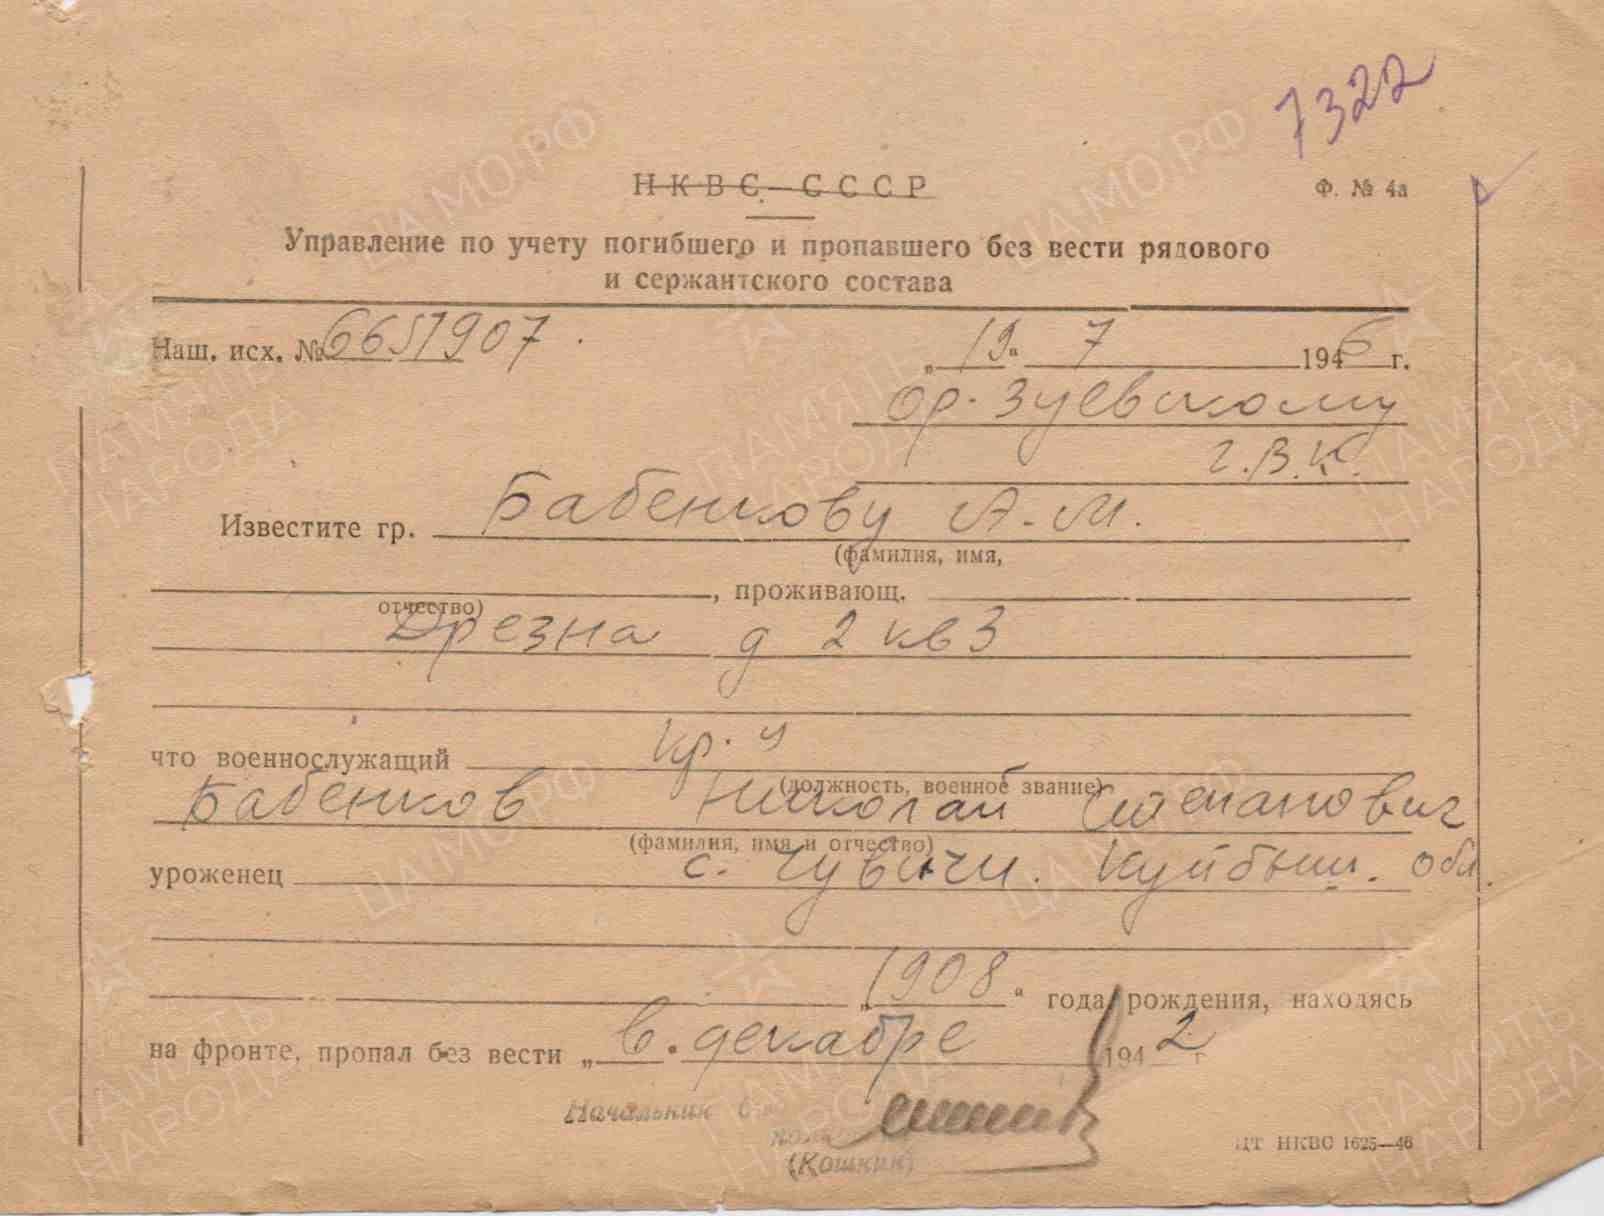 7322
НКВС СССР
Ф. № 4а
Управление по учету погибшего и пропавшего без вести рядового
и сержантского состава
Наш. исх. № 6651907 .
„19“ 7 1946 г.
Ор. Зуевскому
г.В.К.
Известите гр. Бабенкову А. М.
(фамилия, имя,
, проживающ.
отчество)
Дрезна д 2 кв 3
что военнослужащий кр. ц
(должность, военное звание)
Бабенков Николай Степанович
(фамилия, имя и отчество)
уроженец с. Чувичи. Куйбыш. обл.
„1908“ года рождения, находясь
на фронте, пропал без вести „в. декабре 1942 г
Начальник
(Кошкин)
ЦТ НКВС 1625—46
ЦАМО.РФ
ПАМЯТЬ
НАРОДА